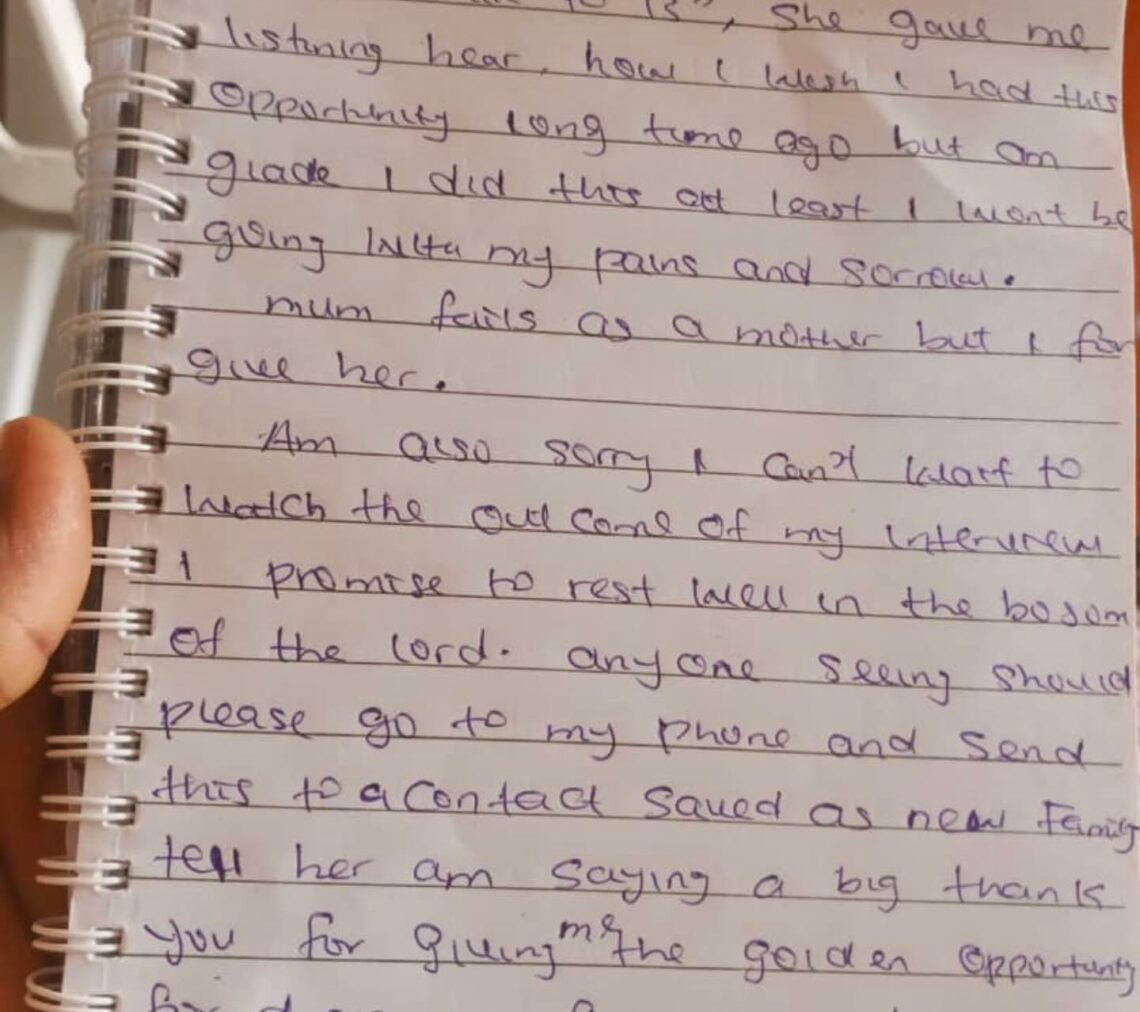 13", She gave me
listning hear, how I wish I had this
opportunity long time ago but am
glade I did this att least I wont be
going with my pains and sorrow.
mum fails as a mother but I for
give her.
Am also sorry I can't wait to
watch the out come of my interview
I promise to rest well in the bosom
of the lord. anyone seeing should
please go to my phone and send
this to a contact saved as new Family
tell her am saying a big thank
you for giving me the golden opportunity